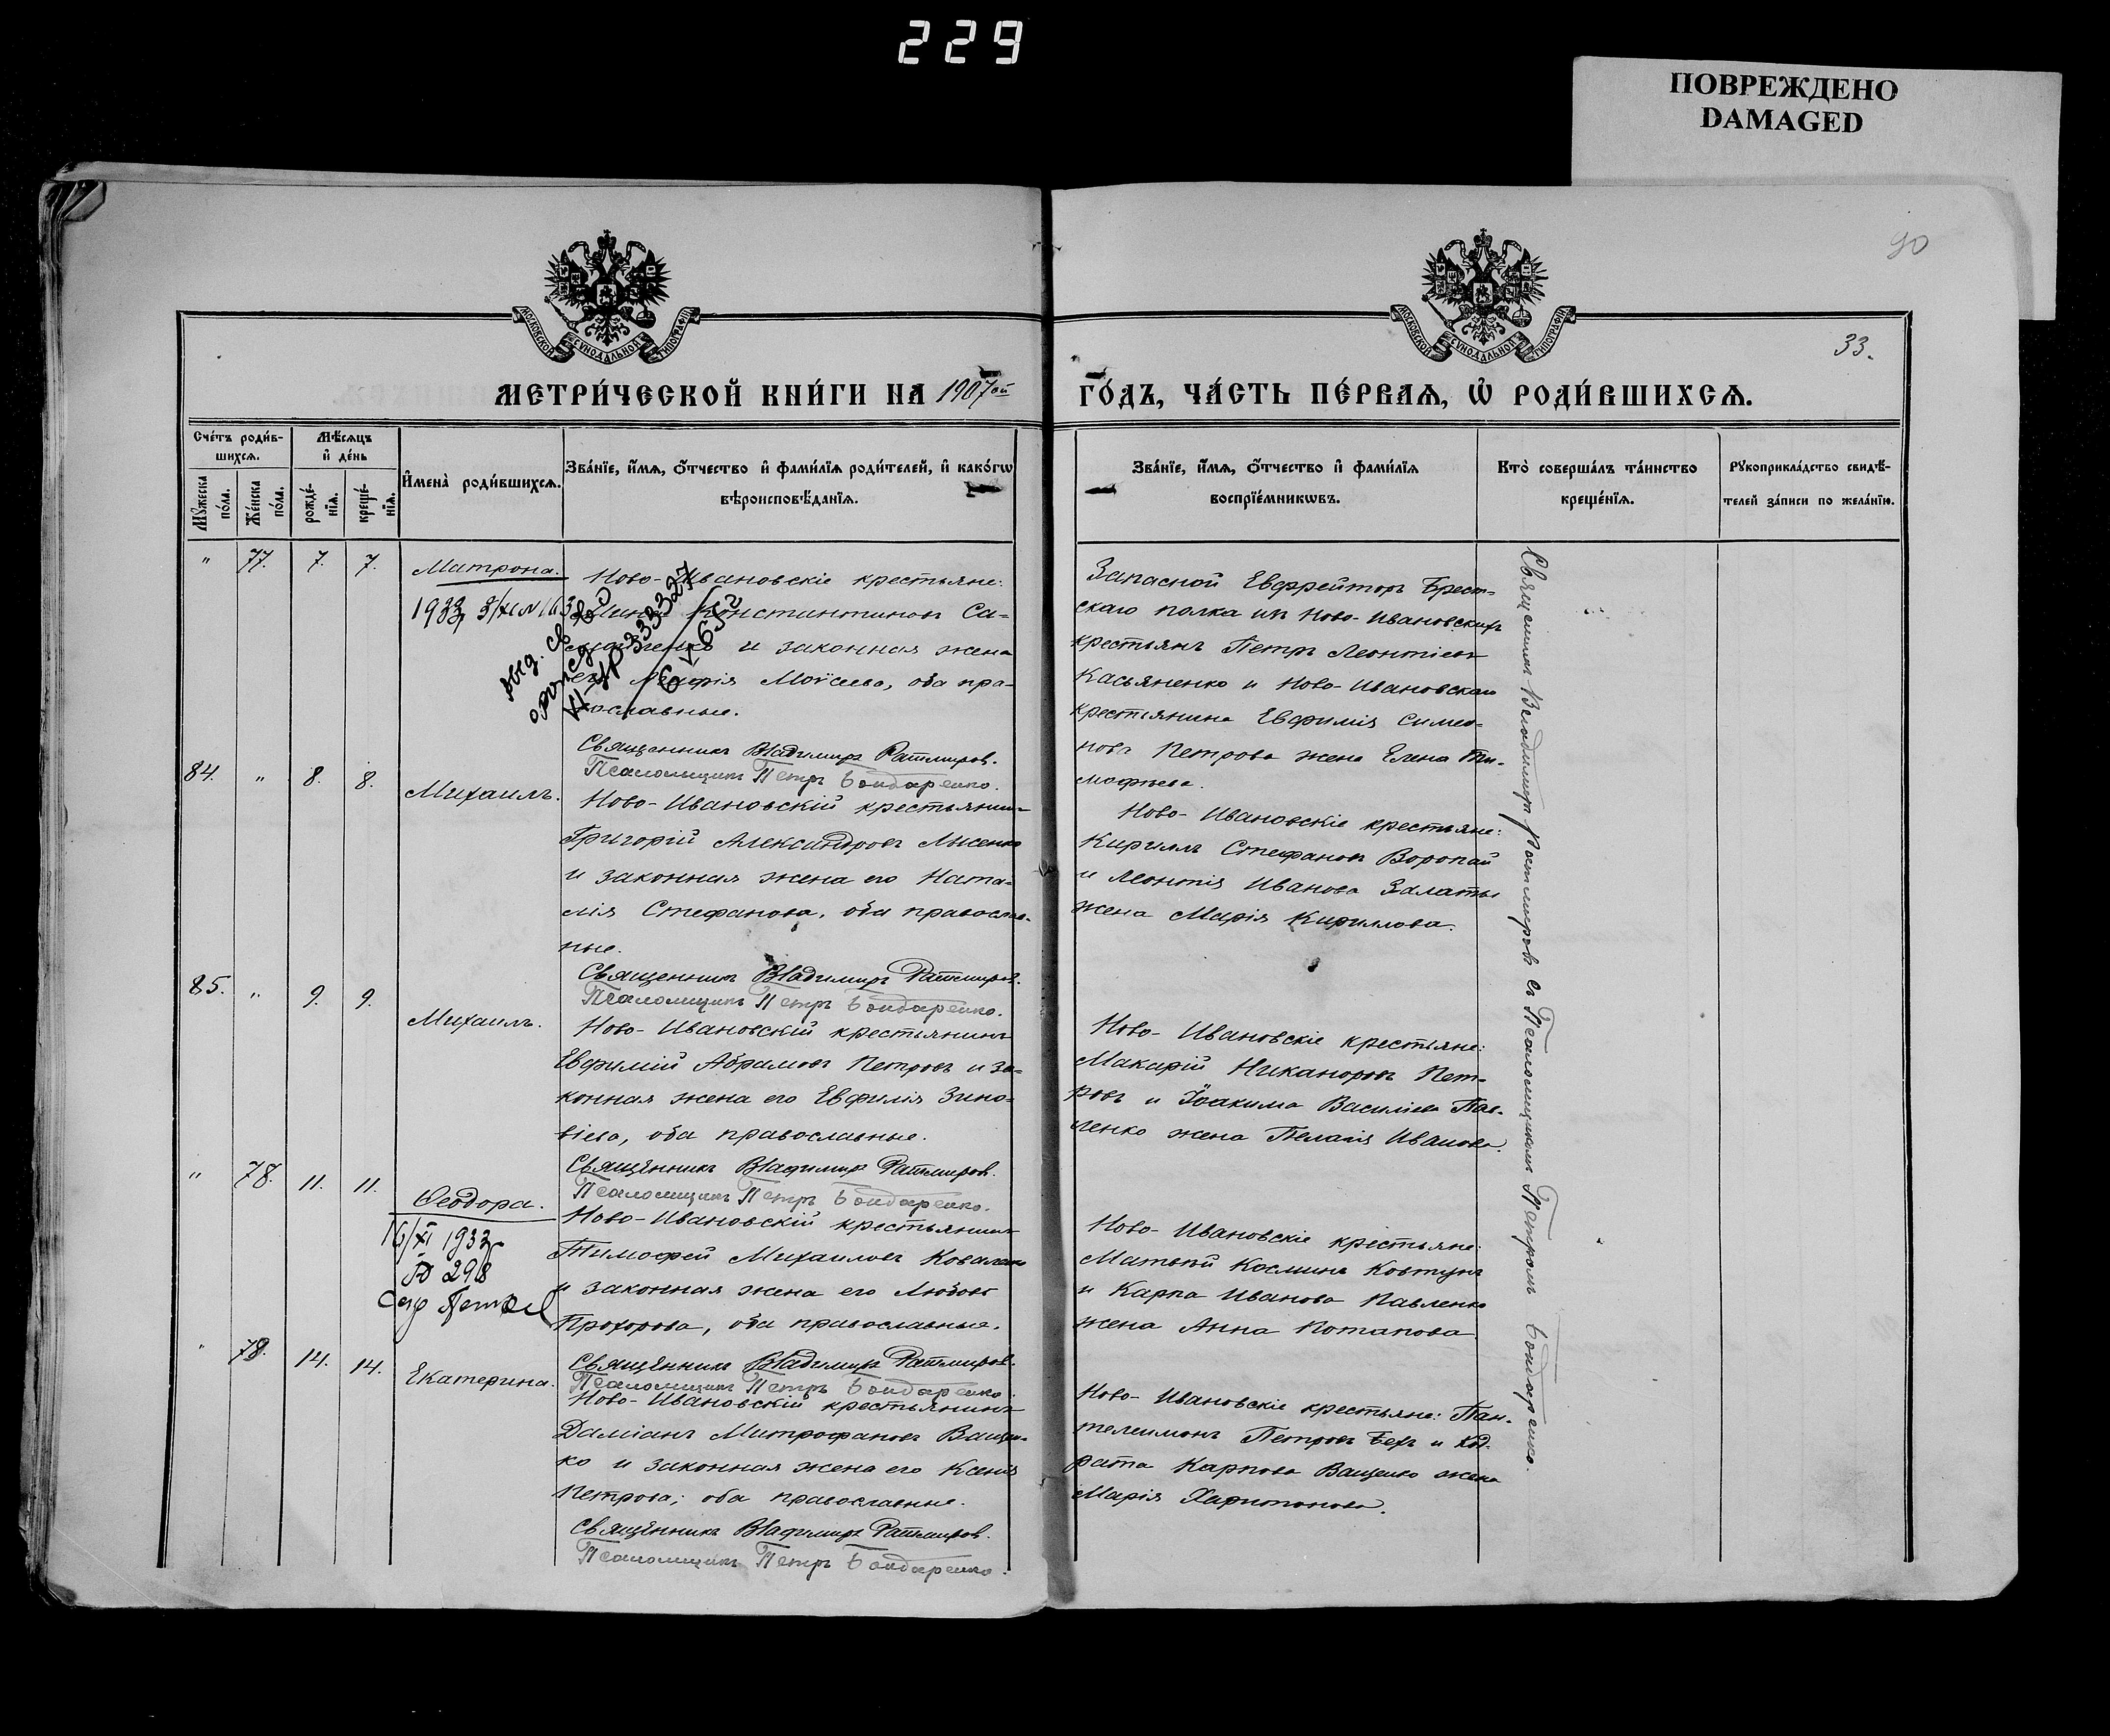 229
ПОВРЕЖДЕНО
DAMAGED
90
МОСКОВСКОЙ СѴНОДАЛЬНОЙ ТИПОГРАФІИ
МОСКОВСКОЙ СѴНОДАЛЬНОЙ ТИПОГРАФІИ
33.
МЕТРИ́ЧЕСКОЙ КНИ́ГИ НА 1907ой
ГО́ДЪ, ЧА́СТЬ ПЕ́РВАѦ, Ѽ РОДИ́ВШИХСѦ.
Сче́тъ роди́в-
шихсѧ.
Мꙋ́жеска по́ла.
Же́нска по́ла.
Мѣ́сѧцъ
и҆ де́нь
рожде́-нїѧ.
креще́-нїѧ.
И҆мена̀ роди́вшихсѧ.
Зва́нїе, и҆́мѧ, ѻ҆́тчество и҆ фами́лїѧ роди́телей, и҆ како́гѡ
вѣроисповѣ́данїѧ.
Зва́нїе, и҆́мѧ, ѻ҆́тчество и҆ фами́лїѧ
воспрїе́мникѡвъ.
Кто̀ соверша́лъ та́инство
креще́нїѧ.
Рꙋкоприкла́дство свидѣ́-
телей за́писи по жела́нїю.
" 77. 7. 7. Матрона.
Ново-Ивановскіе крестьяне:
Константиновъ Са-
и законная жена
Моѵсеева, оба пра-
вославные.
Священникъ Владимиръ Ратмировъ.
Псаломщикъ Петръ Бондаренко.
Запасной Ефрейторъ Брест-
скаго полка изъ Ново-Ивановскихъ
крестьянъ Петръ Леонтіевъ
Касьяненко и Ново-Ивановскаго
крестьянина Евфимія Симео-
нова Петрова жена Елена Ти-
мофѣева.
84. " 8. 8. Михаилъ.
Ново-Ивановскій крестьянинъ
Григорій Александровъ Лысенко
и законная жена его Ната-
лія Стефанова, оба православ-
ные.
Священникъ Владимиръ Ратмировъ.
Псаломщикъ Петръ Бондаренко.
Ново-Ивановскіе крестьяне:
Кириллъ Стефановъ Воропай
и Леонтія Иванова Залаты
жена Марія Кириллова.
85. " 9. 9. Михаилъ.
Ново-Ивановскій крестьянинъ
Евфимій Абрамовъ Петровъ и за-
конная жена его Евфимія Зино-
віева, оба православные.
Священникъ Владимиръ Ратмировъ.
Псаломщикъ Петръ Бондаренко.
Ново-Ивановскіе крестьяне:
Макарій Никаноровъ Пет-
ровъ и Іоакима Василіева Пав-
ленко жена Пелагія Иванова.
" 78. 11. 11. Ѳеодора.
16/XI 1933
№ 298
Ново-Ивановскій крестьянинъ
Тимофей Михаиловъ Коваленко
и законная жена его Любовь
Прохорова, оба православные.
Священникъ Владимиръ Ратмировъ.
Псаломщикъ Петръ Бондаренко.
Ново-Ивановскіе крестьяне:
Матѳій Косминъ Ковтунъ
и Карпа Иванова Павленко
жена Анна Потапова
" 79. 14. 14. Екатерина.
Ново-Ивановскій крестьянинъ
Даміанъ Митрофановъ Ващен-
ко и законная жена его Ксенія
Петрова; оба православные.
Священникъ Владимиръ Ратмировъ.
Псаломщикъ Петръ Бондаренко.
Ново-Ивановскіе крестьяне: Пан-
телеимонъ Петровъ Бехъ и Код-
рата Карпова Ващенко жена
Марія Харитонова.
Священникъ Владимиръ Ратмировъ съ Псаломщикомъ Петромъ Бондаренко.